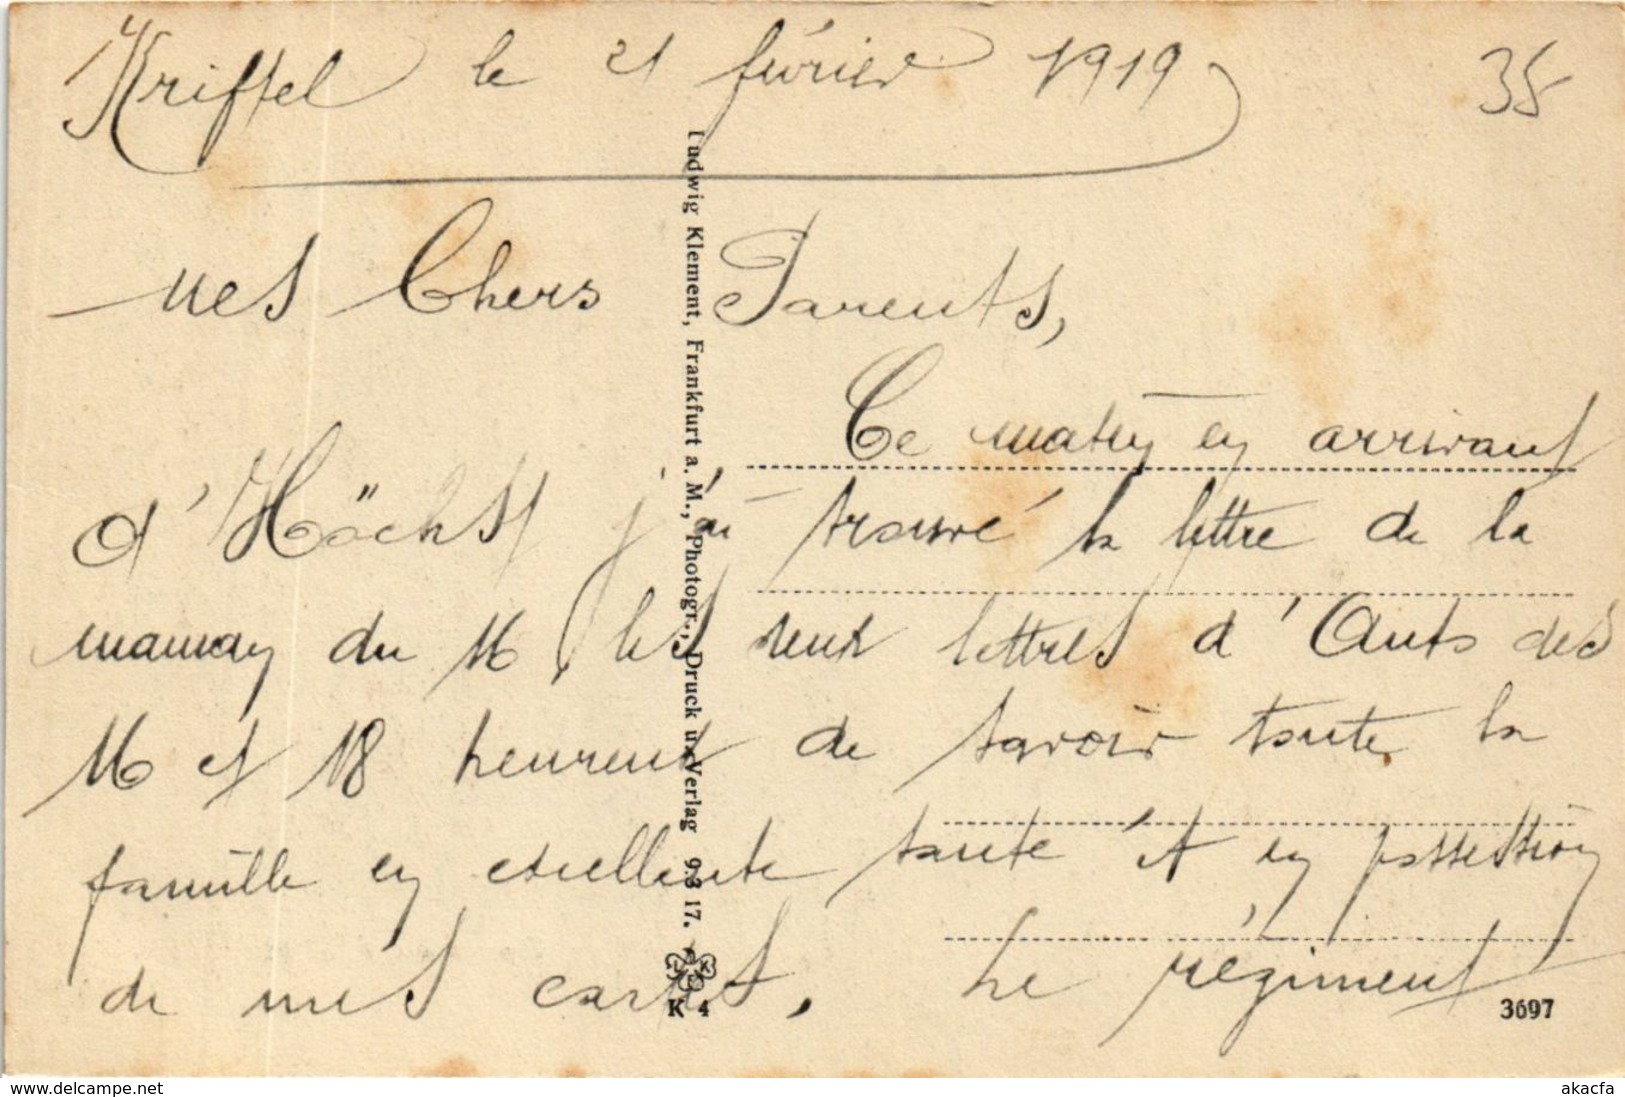 Kriftel le 21 février 1919
35
mes Chers Parents,
Ce matin en arrivant
d'Höchst j'ai trouvé la lettre de la
maman du 16, les deux lettres d' des
16 et 18 heureux de savoir toute la
famille en excellente santé et en possession
de mes cartes. Le régiment
Ludwig Klement, Frankfurt a. M., Photogr., Druck u. Verlag 9.3 17.
K 4
3697
akacfa